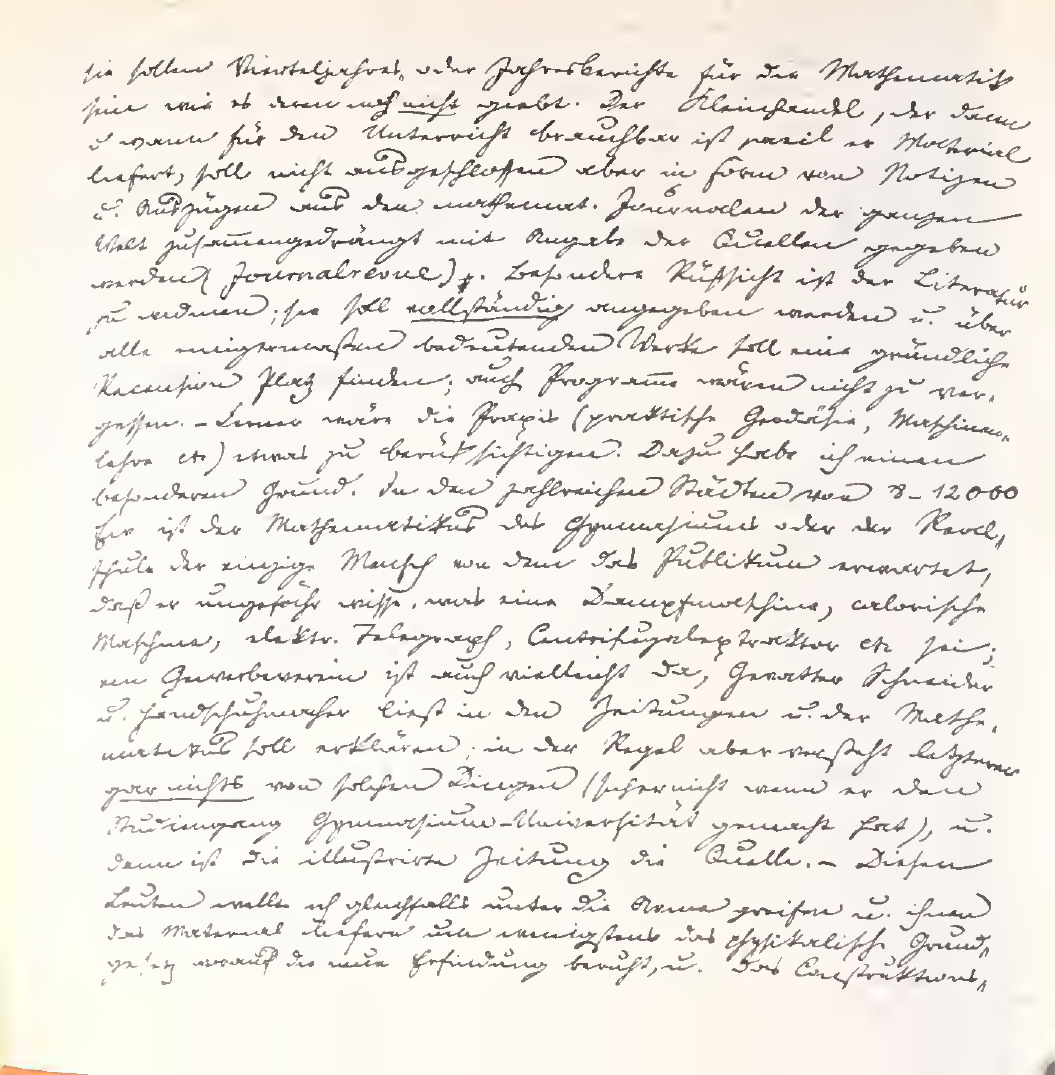 sie sollen Vierteljahres, oder Jahresberichte für die Mathematik
sein wie es deren noch nicht giebt. Der Kleinhandel, der dann
u wann für den Unterricht brauchbar ist weil er Material
liefert, soll nicht ausgeschlossen aber in Form von Notizen
u. Auszügen aus den mathemat. Journalen der ganzen
Welt zusammengedrängt mit Angabe der Quellen gegeben
werden (Journalrevue). Besondere Rücksicht ist der Literatur
zu widmen; sie soll vollständig angegeben werden u. über
alle einigermaßen bedeutenden Werke soll eine gründliche
Recension Platz finden; auch Programme wären nicht zu ver-
gessen. – Ferner wäre die Praxis (praktische Geodäsie, Maschinen-
lehre etc) etwas zu berücksichtigen. Dazu habe ich einen
besonderen Grund. In den zahlreichen Städten von 8–12000
Ew ist der Mathematikus des Gymnasiums oder der Real-
schule der einzige Mensch von dem das Publikum erwartet,
daß er ungefähr wisse, was eine Dampfmaschine, calorische
Maschine, elektr. Telegraph, Centrifugalextraktor etc sei;
ein Gewerbeverein ist auch vielleicht da, Gevatter Schneider
u. Handschuhmacher liest in den Zeitungen u. der Mathe-
matikus soll erklären; in der Regel aber versteht letzterer
gar nichts von solchen Dingen (sicher nicht wenn er den
Studiengang Gymnasium–Universität gemacht hat), u.
dann ist die illustrirte Zeitung die Quelle. – Diesen
Leuten wollte ich gleichfalls unter die Arme greifen u. ihnen
das Material liefern um wenigstens das physikalische Grund-
gesetz worauf die neue Erfindung beruht, u. das Construktions-